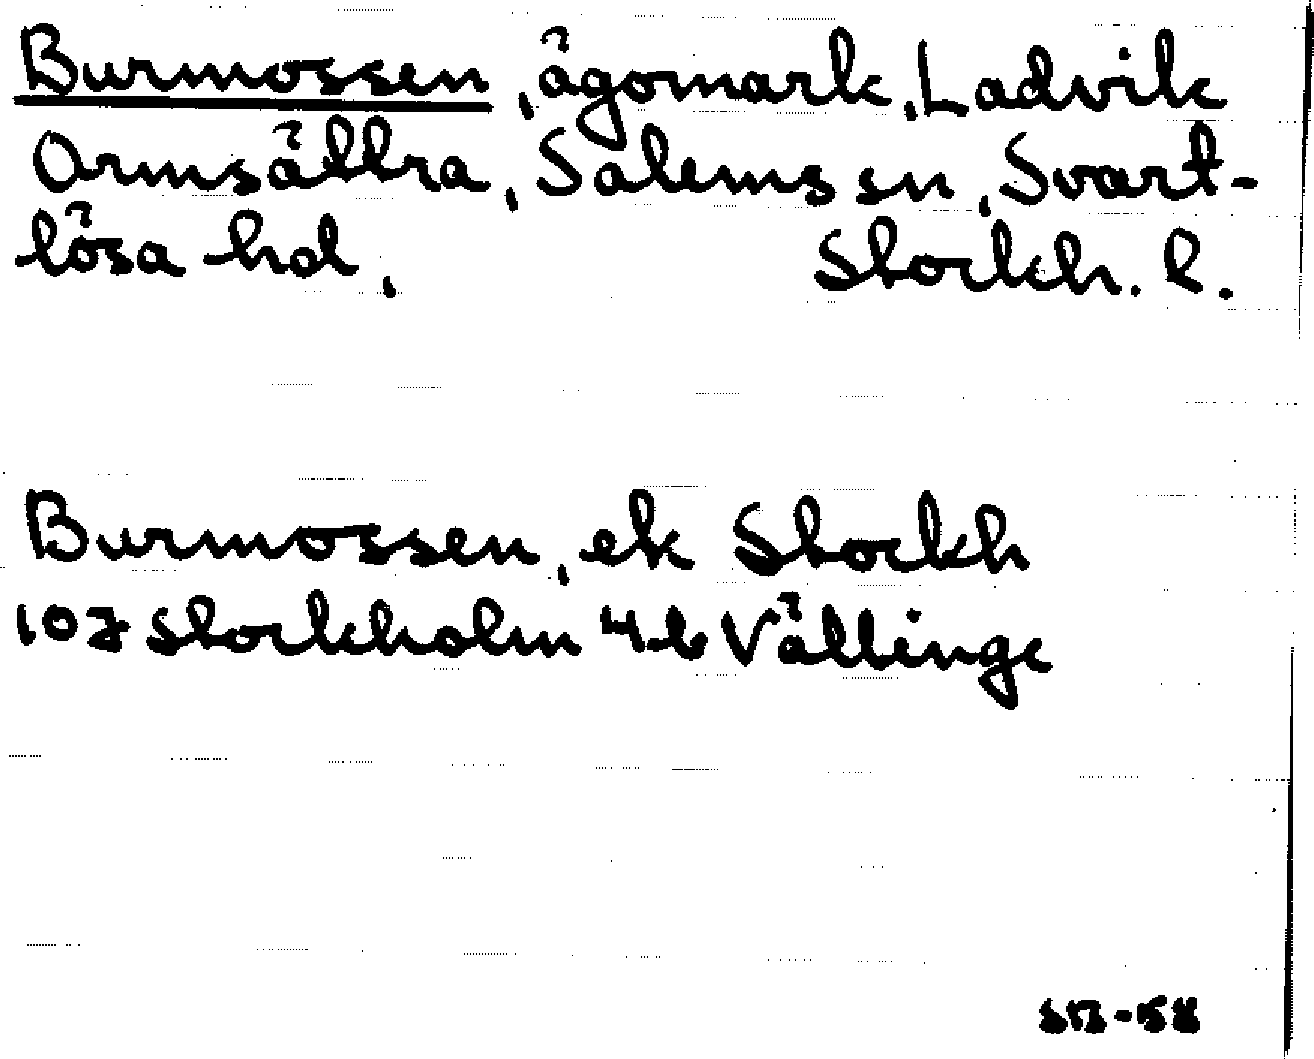 Burmossen, ägomark, Ladvik
Ormsättra, Salems sn, Svart-
lösa hd, Stockh. l.
Burmossen, ek Stockh
107 Stockholm 4b Vällinge